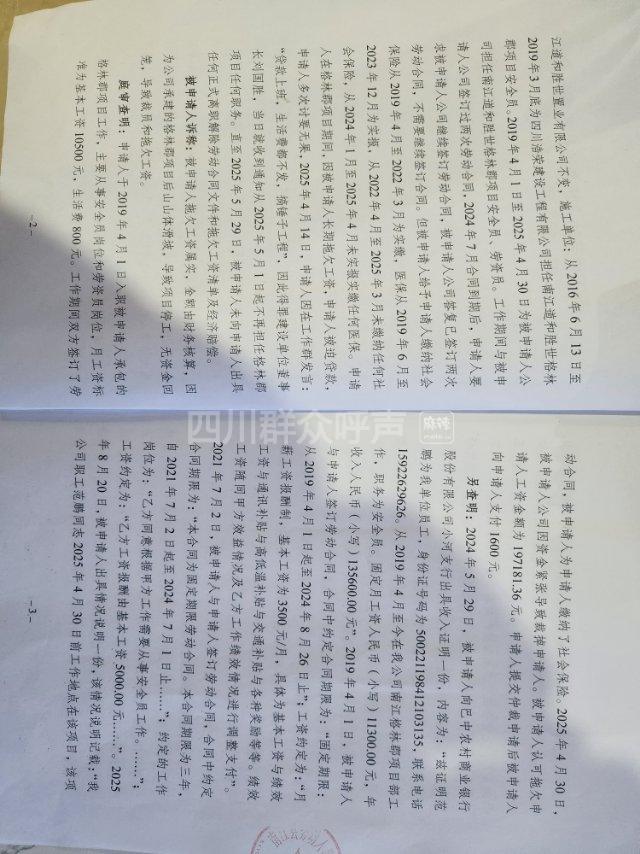 江道和胜世置业有限公司不变，施工单位：从 2016 年 6 月 13 日至
2019 年 3 月底为四川浩荣建设工程有限公司担任南江道和胜世格林
郡项目安全员，2019 年 4 月 1 日至 2025 年 4 月 30 日为被申请人公
司担任南江道和胜世格林郡项目安全员、劳资员。工作期间与被申
请人公司签订过两次劳动合同，2024 年 7 月合同到期后，申请人要
求被申请人公司继续签订劳动合同，被申请人公司答复已签订两次
劳动合同，不需要继续签订合同。但被申请人给予申请人缴纳社会
保险从 2019 年 4 月至 2022 年 3 月为实缴，医保从 2019 年 6 月至
2023 年 12 月为实缴，从 2022 年 4 月至 2025 年 3 月未缴纳任何社
会保险，从 2024 年 1 月至 2025 年 4 月未实缴任何医保。申请
人在格林郡项目期间，因被申请人长期拖欠工资，申请人被迫贷款，
申请人多次讨要无果，2025 年 4 月 14 日，申请人因在工作群发言：
“贷款上班，生活费都不发，搞锤子工程”，因此得罪建设单位董事
长刘国胜，当日就收到通知从 2025 年 5 月 1 日起不再担任格林郡
项目任何职务。直至 2025 年 5 月 29 日，被申请人未向申请人出具
任何正式离职解除劳动合同文件和拖欠工资清单及经济赔偿。
被申请人诉称：被申请人拖欠工资属实，金额由财务核算，因
为公司承建的格林郡项目后山山体滑坡，导致项目停工，无资金回
笼，导致裁员和拖欠工资。
庭审查明：申请人于 2019 年 4 月 1 日入职被申请人承包的
格林郡项目工作，主要从事安全员岗位和劳资员岗位，月工资标
准为基本工资 10500 元，生活费 800 元。工作期间双方签订了劳
－2－
动合同，被申请人为申请人缴纳了社会保险。2025 年 4 月 30 日，
被申请人公司因资金紧张导致裁掉申请人。被申请人认可拖欠申
请人工资金额为 197181.36 元。申请人提交仲裁申请后被申请人
向申请人支付 1600 元。
另查明：2024 年 5 月 29 日，被申请人向巴中农村商业银行
股份有限公司小河支行出具收入证明一份，内容为：“兹证明范
鹏为我单位员工，身份证号码为 500221198412103135，联系电话
15922629626。从 2019 年 4 月至今在我公司南江格林郡项目部工
作，职务为安全员。固定月工资人民币（小写）11300.00 元，年
收入人民币（小写）135600.00 元”。2019 年 4 月 1 日，被申请人
与申请人签订劳动合同，合同中约定合同期限为：“固定期限：
从 2019 年 4 月 1 日起至 2024 年 8 月 26 日止”；工资约定为：“月
薪工资报酬制，基本工资为 3500 元/月，具体为基本工资与绩效
工资与通讯补贴与高低温补贴与交通补贴与各种奖励等等。绩效
工资随同甲方效益情况及乙方工作绩效情况进行调整支付”。
2021 年 7 月 2 日，被申请人与申请人签订劳动合同，合同中约定
合同期限为：“本合同为固定期限劳动合同。本合同期限为三年，
自 2021 年 7 月 2 日起至 2024 年 7 月 1 日止……”，约定的工作
岗位为：“乙方同意根据甲方工作需要从事安全员工作。……”；
工资约定为：“乙方工资报酬由基本工资 5000.00 元……”。2025
年 8 月 20 日，被申请人出具情况说明一份，该情况说明记载：“我
公司职工范鹏同志 2025 年 4 月 30 日前工作地点在该项目，该项
－3－
四川群众呼声
麻辣